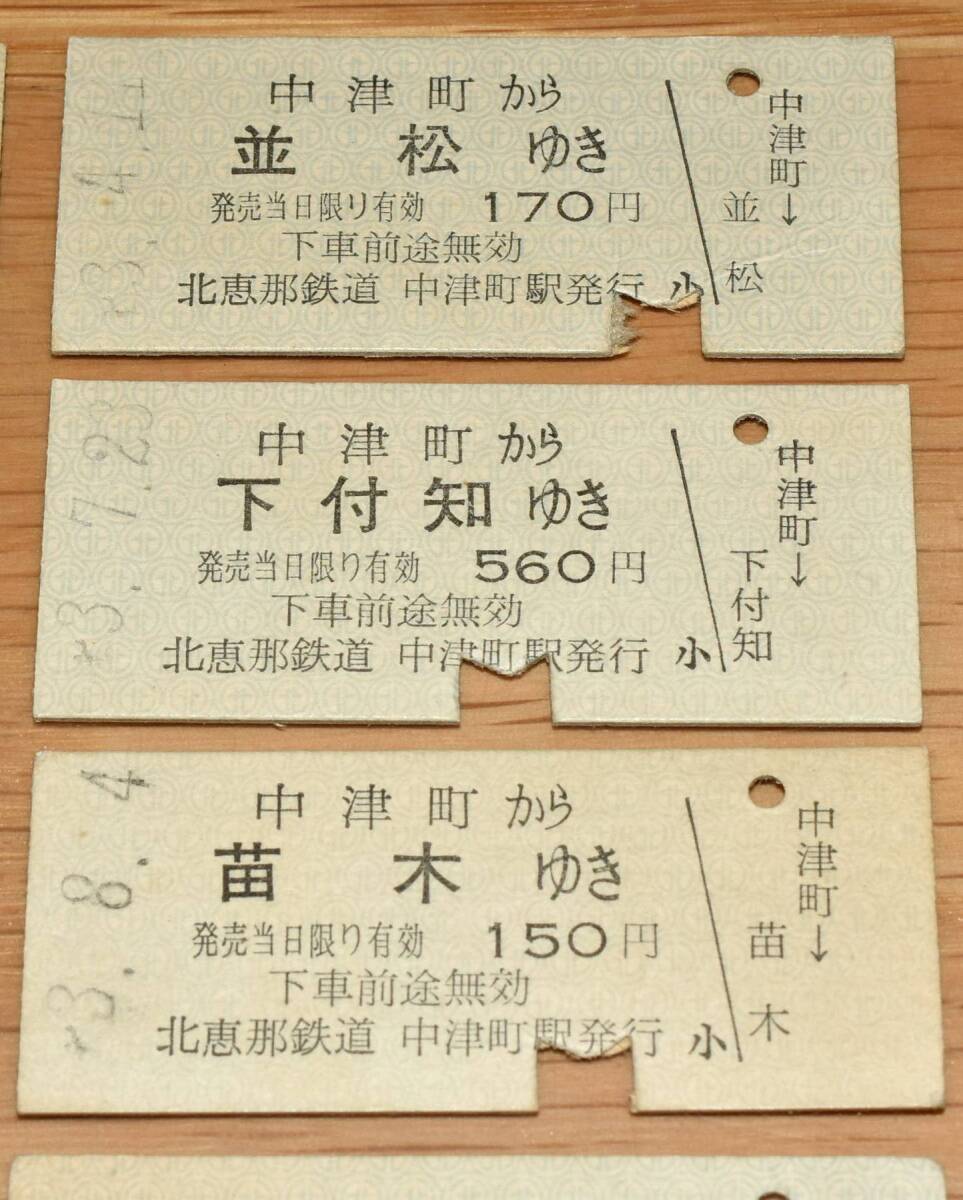 中津町から
並松ゆき
発売当日限り有効 170円
下車前途無効
北恵那鉄道 中津町駅発行 小
中津町→
並松
中津町から
下付知ゆき
発売当日限り有効 560円
下車前途無効
北恵那鉄道 中津町駅発行 小
中津町→
下付知
3.7.23
中津町から
苗木ゆき
発売当日限り有効 150円
下車前途無効
北恵那鉄道 中津町駅発行 小
中津町→
苗木
3.8.4